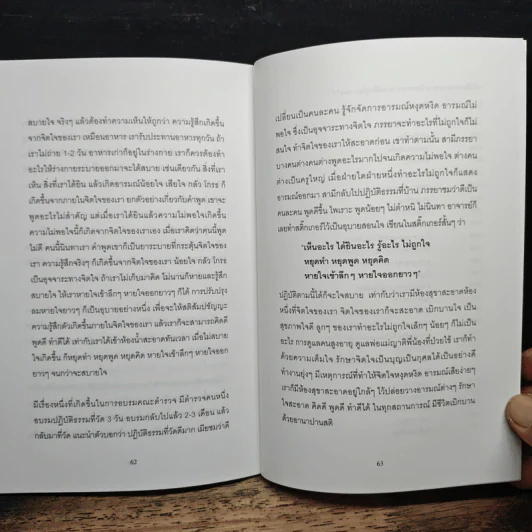 สบายใจ จริงๆ แล้วต้องทำความเห็นให้ถูกว่า ความรู้สึกเกิดขึ้น
จากจิตใจของเรา เหมือนอาหาร เรารับประทานอาหารทุกวัน ถ้า
เราไม่ถ่าย 1-2 วัน อาหารเก่าก็อยู่ในร่างกาย เราก็ควรต้องทำ
อะไรให้ร่างกายระบายออกมาจะได้สบาย เช่นเดียวกัน สิ่งที่เรา
เห็น สิ่งที่เราได้ยิน แล้วเกิดอารมณ์น้อยใจ เสียใจ กลัว โกรธ ก็
เกิดขึ้นจากภายในจิตใจของเรา ยกตัวอย่างเกี่ยวกับคำพูด เขาจะ
พูดอะไรไม่สำคัญ แต่เมื่อเราได้ยินแล้วความไม่พอใจเกิดขึ้น
ความไม่พอใจนี้ก็เกิดจากจิตใจของเราเอง เมื่อเราคิดว่าคนนี้พูด
ไม่ดี คนนี้นินทาเรา คำพูดเขาก็เป็นยาระบายที่กระตุ้นจิตใจของ
เรา ความรู้สึกจริงๆ ก็เกิดขึ้นจากจิตใจของเรา น้อยใจ กลัว โกรธ
เป็นอุจจาระทางจิตใจ ถ้าเราไม่เก็บมาคิด ไม่นานก็หายและรู้สึก
สบายใจ ให้เราหายใจเข้าลึกๆ หายใจออกยาวๆ ก็ได้ การปรับปรุง
ลมหายใจยาวๆ ก็เป็นอุบายอย่างหนึ่ง เพื่อจะให้สติสัมปชัญญะ
ความรู้สึกตัวเกิดขึ้นภายในจิตใจของเรา แล้วเราก็จะสามารถคิดดี
พูดดี ทำดีได้ เท่ากับเราได้เข้าห้องน้ำสะอาดทันเวลา เมื่อไม่สบาย
ใจเกิดขึ้น ก็หยุดทำ หยุดพูด หยุดคิด หายใจเข้าลึกๆ หายใจออก
ยาวๆ จนกว่าจะสบายใจ
มีเรื่องหนึ่งที่เกิดขึ้นในการอบรมคณะตำรวจ มีตำรวจคนหนึ่ง
อบรมปฏิบัติธรรมที่วัด 3 วัน อบรมกลับไปแล้ว 2-3 เดือน แล้ว
กลับมาที่วัด แนะนำตัวบอกว่า ปฏิบัติธรรมที่วัดดีมาก เมียชมว่าดี
62
เปลี่ยนเป็นคนละคน รู้จักจัดการอารมณ์หงุดหงิด อารมณ์ไม่
พอใจ ซึ่งเป็นอุจจาระทางจิตใจ ภรรยาจะทำอะไรที่ไม่ถูกใจก็ไม่
สนใจ ทำจิตใจของเราให้สะอาดก่อน เขาทำตามนั้น สามีภรรยา
บางคนต่างคนต่างพูดอะไรมากไปจนเกิดความไม่พอใจ ต่างคน
ต่างเป็นครูใหญ่ เมื่อฝ่ายใดฝ่ายหนึ่งทำอะไรไม่ถูกใจก็แสดง
อารมณ์ออกมา สามีกลับไปปฏิบัติธรรมที่บ้าน ภรรยาชมว่าดีเป็น
คนละคน พูดดีขึ้น ไพเราะ พูดน้อยๆ ไม่ตำหนิ ไม่นินทา อาจารย์ก็
เลยทำสติ๊กเกอร์ไว้เป็นอุบายสอนใจ เขียนในสติ๊กเกอร์สั้นๆ ว่า
"เห็นอะไร ได้ยินอะไร รู้อะไร ไม่ถูกใจ
หยุดทำ หยุดพูด หยุดคิด
หายใจเข้าลึกๆ หายใจออกยาวๆ"
ปฏิบัติตามนี้ได้ก็จะใจสบาย เท่ากับว่าเรามีห้องสุขาสะอาดห้อง
หนึ่งที่จิตใจของเรา จิตใจของเราก็จะสะอาด เบิกบานใจ เป็น
สุขภาพใจดี ลูกๆ ของเราทำอะไรไม่ถูกใจเล็กๆ น้อยๆ ก็ไม่เป็น
อะไร การดูแลคนสูงอายุ ดูแลพ่อแม่ญาติพี่น้องที่ป่วยใช้ เราก็ทำ
ด้วยความเต็มใจ รักษาจิตใจเป็นบุญเป็นกุศลได้เป็นอย่างดี
ทำงานยุ่งๆ มีเหตุการณ์ที่ทำให้จิตใจหงุดหงิด อารมณ์เสียง่ายๆ
เราก็มีห้องสุขาสะอาดอยู่ใกล้ๆ ไว้ปล่อยวางอารมณ์ต่างๆ รักษา
ใจสะอาด คิดดี พูดดี ทำดีได้ ในทุกสถานการณ์ มีชีวิตเบิกบาน
ด้วยอานาปานสติ
63